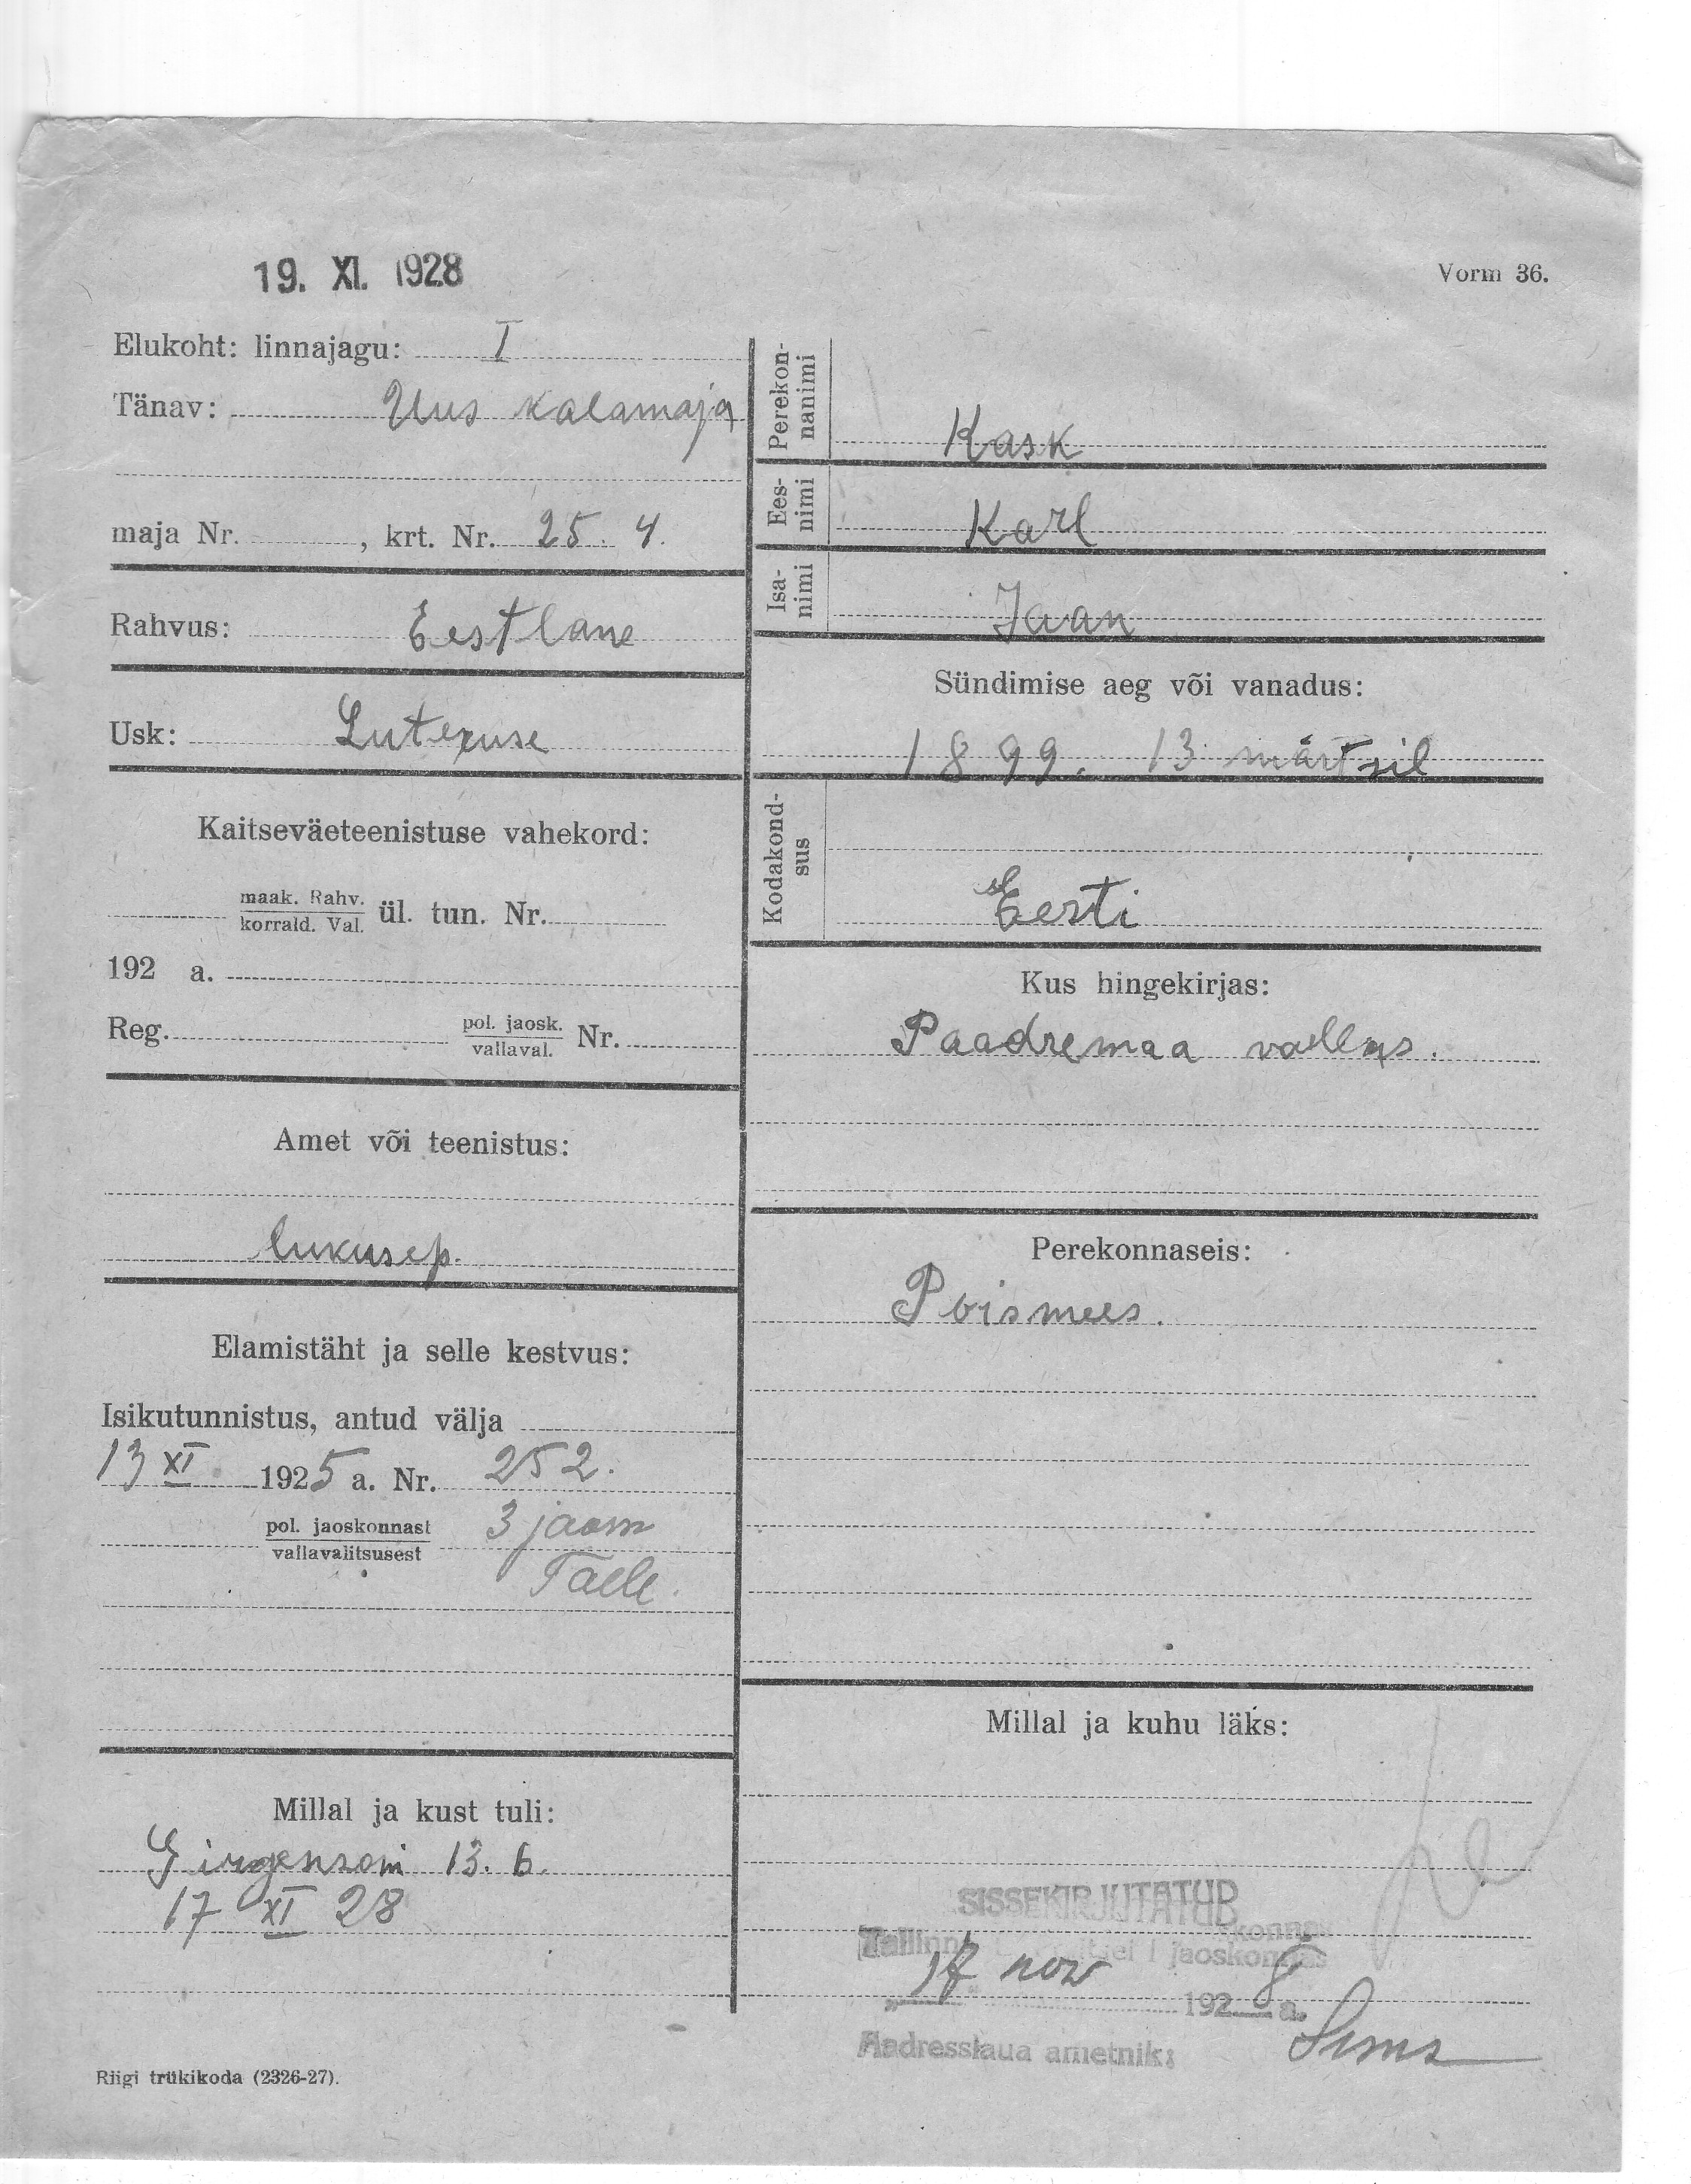 19. XI. 1928
Vorm 36.
Elukoht: linnajagu: I
Tänav: Uus kalamaja
maja Nr. , krt. Nr. 25. 4.
Rahvus: Eestlane
Usk: Luteruse
Kaitseväeteenistuse vahekord:
maak. Rahv.
korrald. Val. ül. tun. Nr.
192 a.
Reg. pol. jaosk.
vallaval. Nr.
Amet või teenistus:
lukusep.
Elamistäht ja selle kestvus:
Isikutunnistus, antud välja
13 XI 1925 a. Nr. 252.
pol. jaoskonnast 3 jaosm
vallavalitsusest
Talle.
Millal ja kust tuli:
Girgensoni 13. 6.
17 XI 28
Riigi trükikoda (2326-27).
Perekon-
nanimi
Kask
Ees-
nimi
Karl
Isa-
nimi
Jaan
Sündimise aeg või vanadus:
1899. 13 märtsil
Kodakond-
sus
Eesti
Kus hingekirjas:
Paadremaa vallas.
Perekonnaseis:
Poismees.
Millal ja kuhu läks:
SISSEKIRJUTATUD
Tallinna I jaoskonnas
„17 nov 1928 a.
Aadresslaua ametnik: